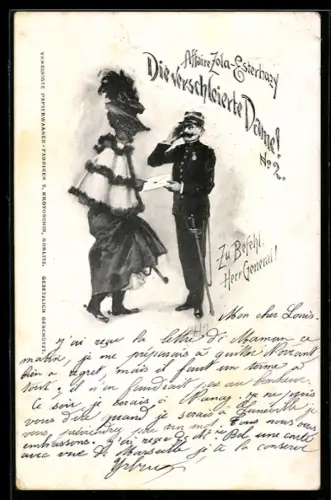 Affaire Zola-Esterhazy
Die verschleierte Dame!
No 2.
Zu Befehl,
Herr General!
VEREINIGTE PAPIERWAAREN-FABRIKEN S. KROTOSCHIN, GÖRLITZ. GESETZLICH GESCHÜTZT.
Mon cher Louis.
J'ai reçu la lettre de Maman ce
matin, je me préparais à quitter
bien à regret, mais il faut un terme à
tout; et il n'en faudrait pas au bonheur.
Ce soir je serais à Nancy. Je ne puis
vous dire quand je serais à Lunéville je
vous
embrassons. J'ai reçu de une carte
avec vue de Marseille je la conserve